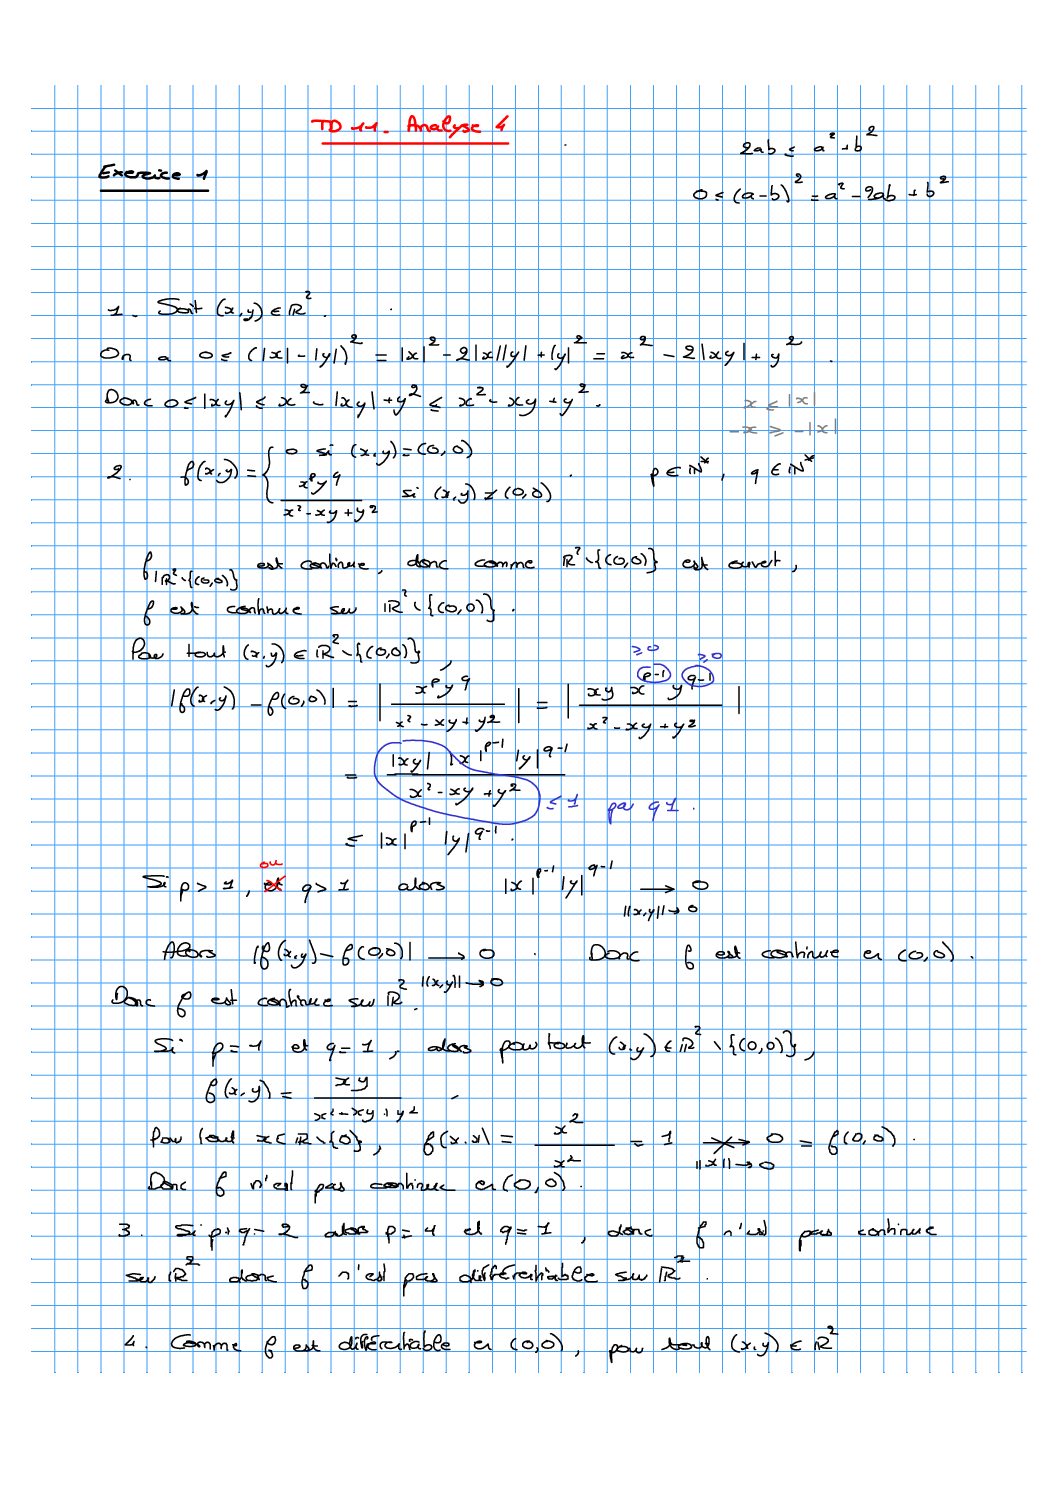 TD 11. Analyse 4
2ab ≤ a² + b²
Exercice 1
0 ≤ (a-b)² = a² - 2ab + b²
1. Soit (x,y) ∈ ℝ².
On a 0 ≤ (|x| - |y|)² = |x|² - 2|x||y| + |y|² = x² - 2|xy| + y².
Donc 0 ≤ |xy| ≤ x² - |xy| + y² ≤ x² - xy + y².
x ≤ |x|
-x ≥ -|x|
2. f(x,y) = { 0 si (x,y) = (0,0)
x^p y^q / (x² - xy + y²) si (x,y) ≠ (0,0)
p ∈ ℕ*, q ∈ ℕ*
f|ℝ²∖{(0,0)} est continue, donc comme ℝ²∖{(0,0)} est ouvert,
f est continue sur ℝ²∖{(0,0)}.
Pour tout (x,y) ∈ ℝ²∖{(0,0)},
≥0 ≥0
|f(x,y) - f(0,0)| = | x^p y^q / (x² - xy + y²) | = | xy x^(p-1) y^(q-1) / (x² - xy + y²) |
= |xy| |x|^(p-1) |y|^(q-1) / (x² - xy + y²) ≤ 1 par q1.
≤ |x|^(p-1) |y|^(q-1).
Si p > 1, ou q > 1 alors |x|^(p-1) |y|^(q-1) → 0
||x,y|| → 0
Alors |f(x,y) - f(0,0)| → 0. Donc f est continue en (0,0).
||(x,y)|| → 0
Donc f est continue sur ℝ².
Si p = 1 et q = 1, alors pour tout (x,y) ∈ ℝ²∖{(0,0)},
f(x,y) = xy / (x² - xy + y²).
Pour tout x ∈ ℝ∖{0}, f(x,x) = x² / x² = 1 ↛ 0 = f(0,0).
||x|| → 0
Donc f n'est pas continue en (0,0).
3. Si p+q = 2 alors p = 1 et q = 1, donc f n'est pas continue
sur ℝ² donc f n'est pas différentiable sur ℝ².
4. Comme f est différentiable en (0,0), pour tout (x,y) ∈ ℝ²